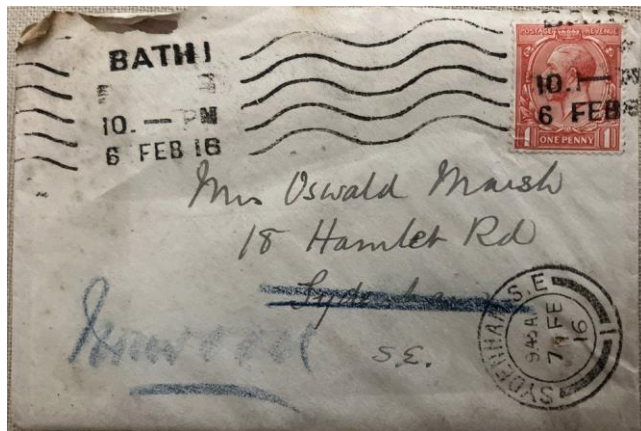 BATH 1
10. — PM
6 FEB 16
POSTAGE REVENUE
10.1—
6 FEB
1 ONE PENNY 1
Mrs Oswald Marsh
18 Hamlet Rd
Sydenham
S.E.
SYDENHAM S.E
9.45 A
7 FE
16
1